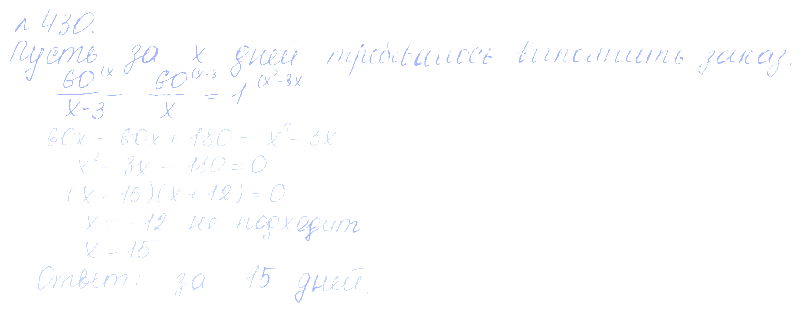 № 430.
Пусть за x дней требовалось выполнить заказ.
60^(x / x-3 - 60^(x-3 / x = 1^(x²-3x
60x - 60x + 180 = x² - 3x
x² - 3x - 180 = 0
(x - 15)(x + 12) = 0
x = -12 не подходит
x = 15
Ответ: за 15 дней.